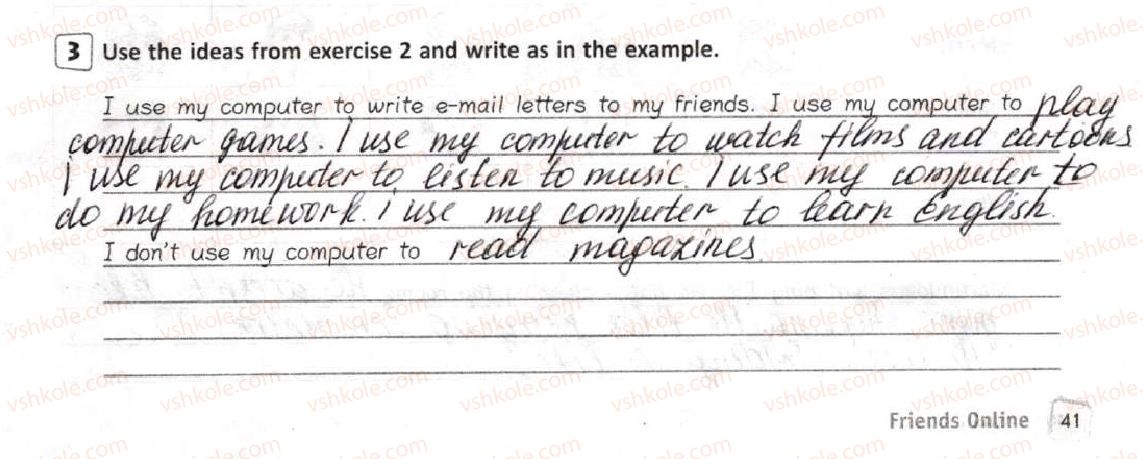 3 Use the ideas from exercise 2 and write as in the example.
I use my computer to write e-mail letters to my friends. I use my computer to play
computer games. I use my computer to watch films and cartoons
I use my computer to listen to music. I use my computer to
do my homework. i use my computer to learn English.
I don't use my computer to read magazines.
Friends Online 41
vshkole.com